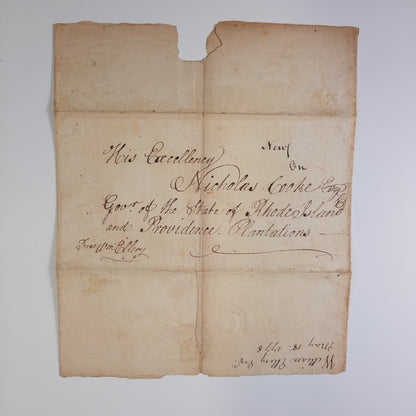 His Excellency
Newp
On
Nicholas Cooke Esqr
Govr. of the State of Rhode Island
and Providence Plantations
Free Wm Ellery
William Ellery Esqr
May 18. 1778